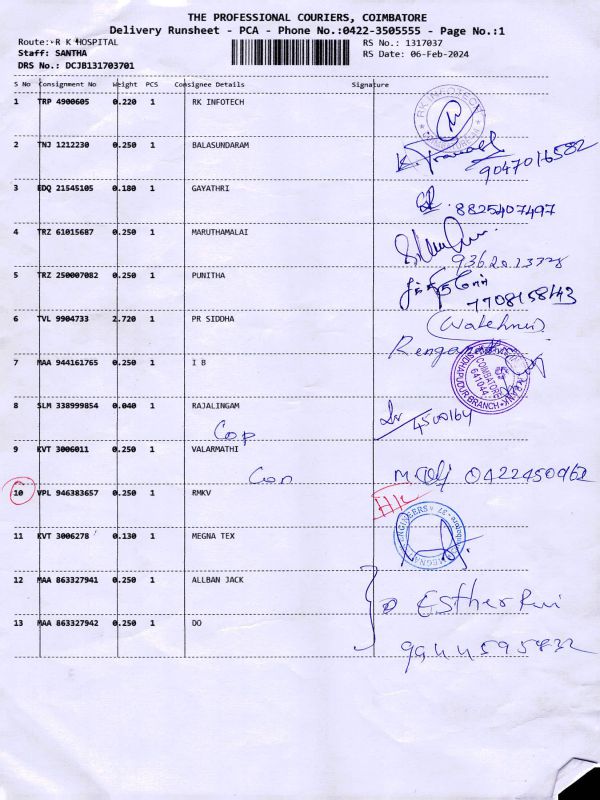 THE PROFESSIONAL COURIERS, COIMBATORE
Delivery Runsheet - PCA - Phone No.:0422-3505555 - Page No.:1
Route: R K HOSPITAL RS No.: 1317037
Staff: SANTHA RS Date: 06-Feb-2024
DRS No.: DCJB131703701
S No Consignment No Weight PCS Consignee Details Signature
1 TRP 4900605 0.220 1 RK INFOTECH
RK INFOTECH
2 TNJ 1212230 0.250 1 BALASUNDARAM
9047016582
3 EDQ 21545105 0.180 1 GAYATHRI
8825407497
4 TRZ 61015687 0.250 1 MARUTHAMALAI
5 TRZ 250007082 0.250 1 PUNITHA
7708158143
6 TVL 9904733 2.720 1 PR SIDDHA
7 MAA 944161765 0.250 1 I B
COIMBATORE
641044
BRANCH
8 SLM 338999854 0.040 1 RAJALINGAM
4500164
9 KVT 3006011 0.250 1 VALARMATHI
10 VPL 946383657 0.250 1 RMKV
11 KVT 3006278 0.130 1 MEGNA TEX
12 MAA 863327941 0.250 1 ALLBAN JACK
Esther
13 MAA 863327942 0.250 1 DO